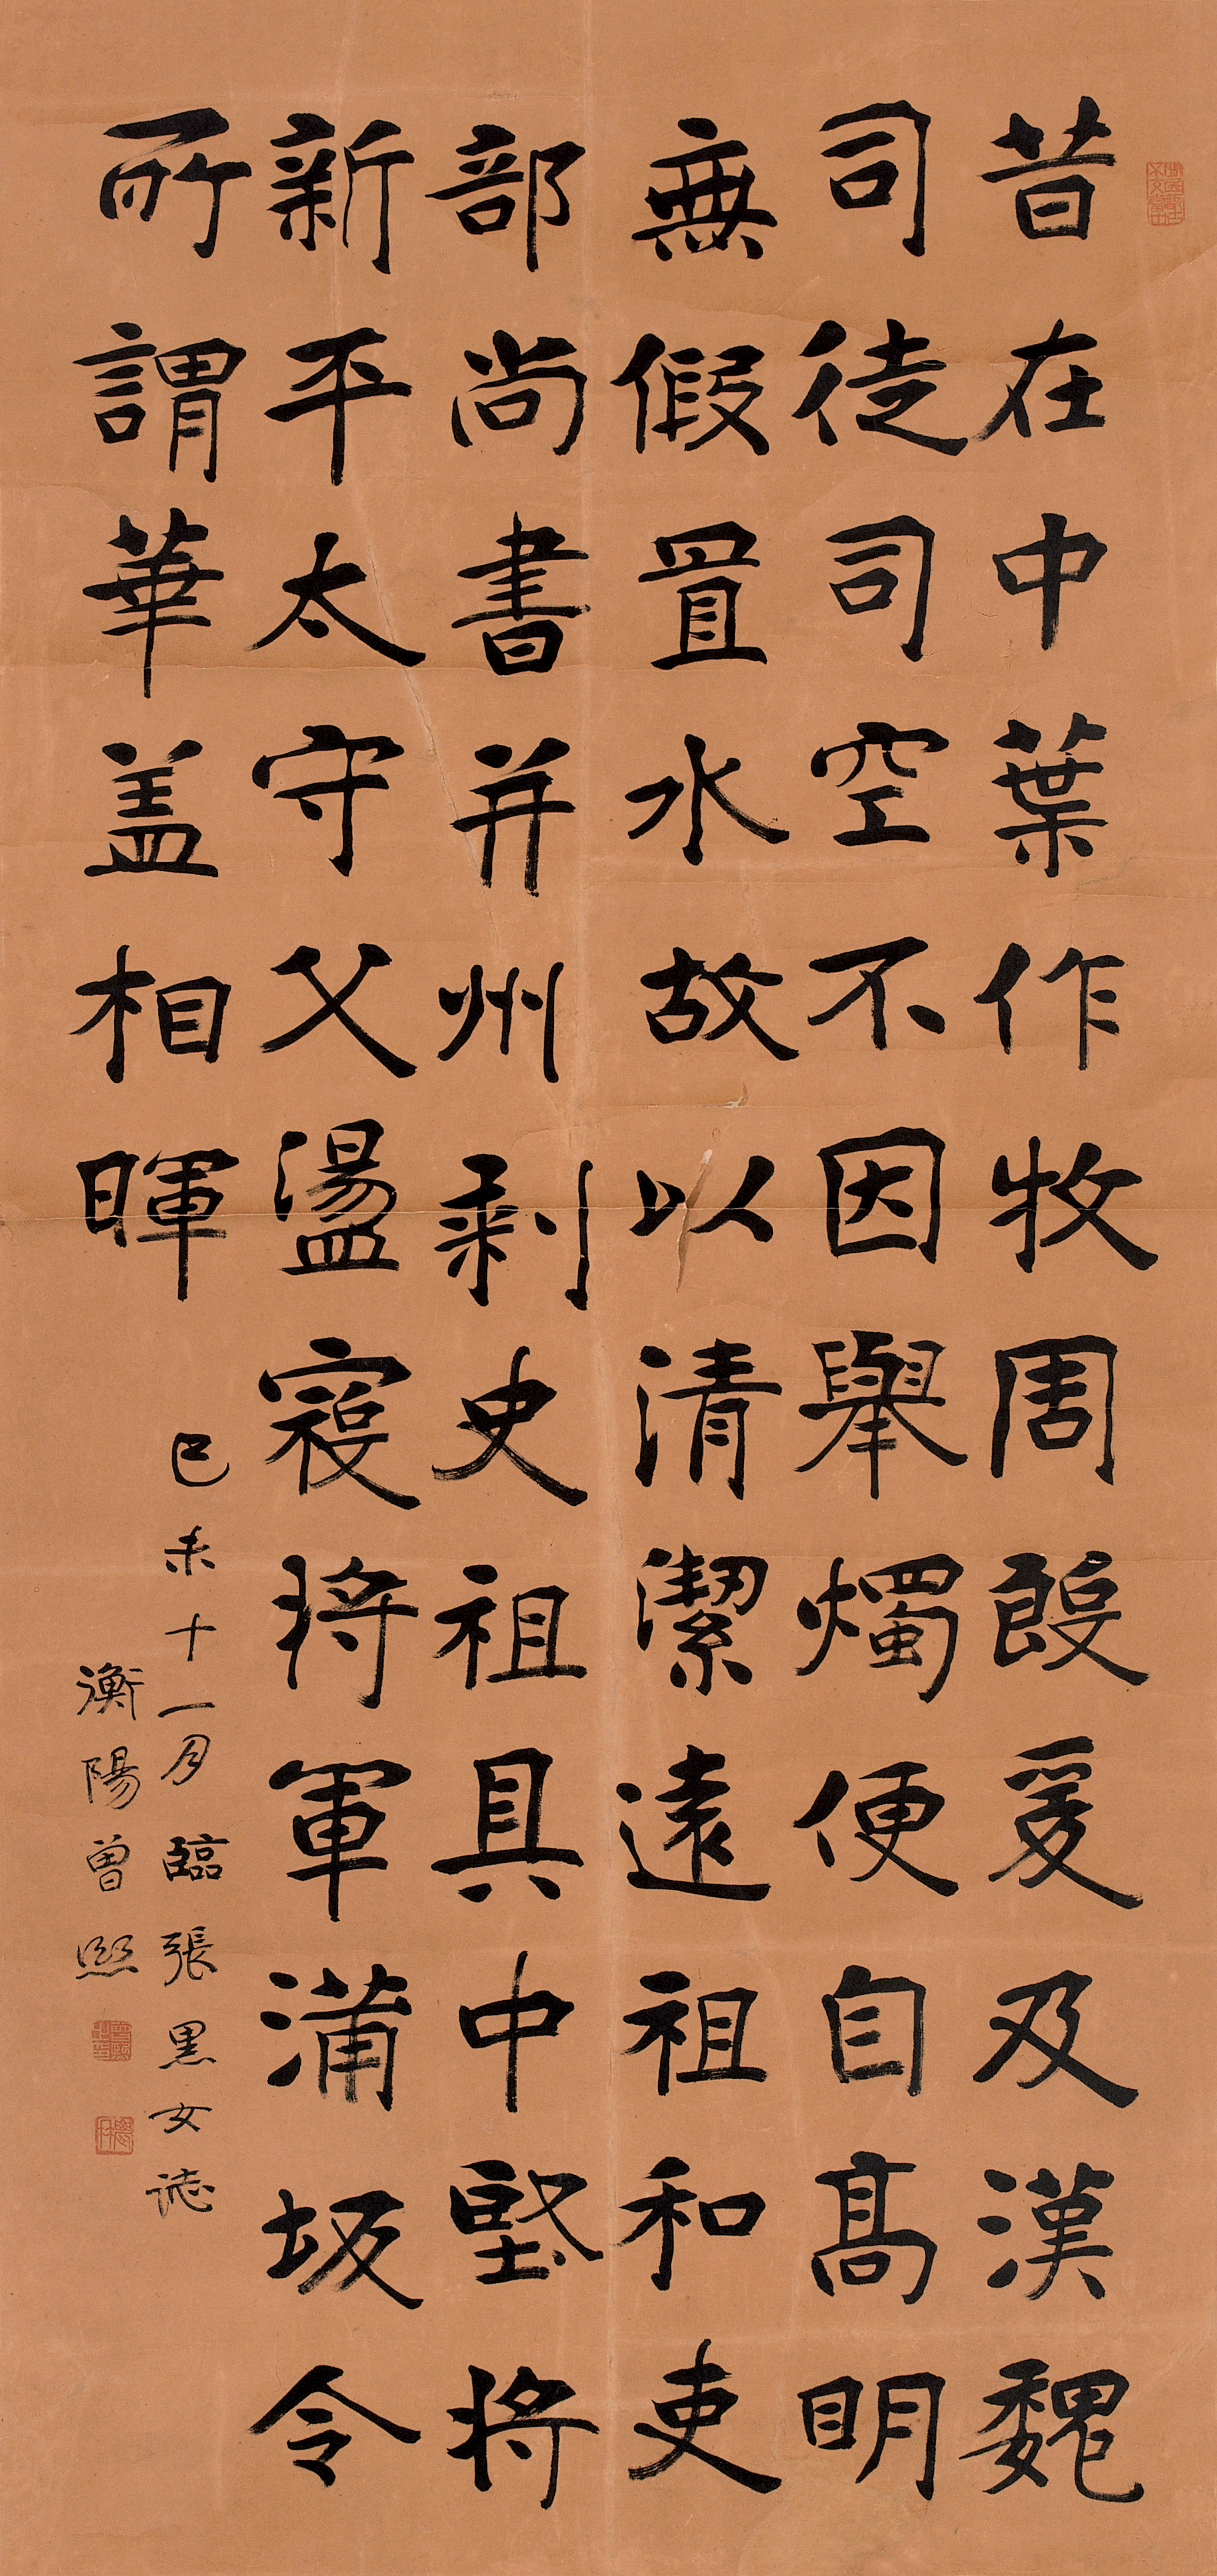 昔在中葉作牧周殷爰及漢魏
司徒司空不因舉燭便自高明
無假置水故以清潔遠祖和吏
部尚書并州刺史祖具中堅將
新平太守父盪寇將軍蒲坂令
所謂華盖相暉
己未十一月臨張黑女誌
衡陽曾熙